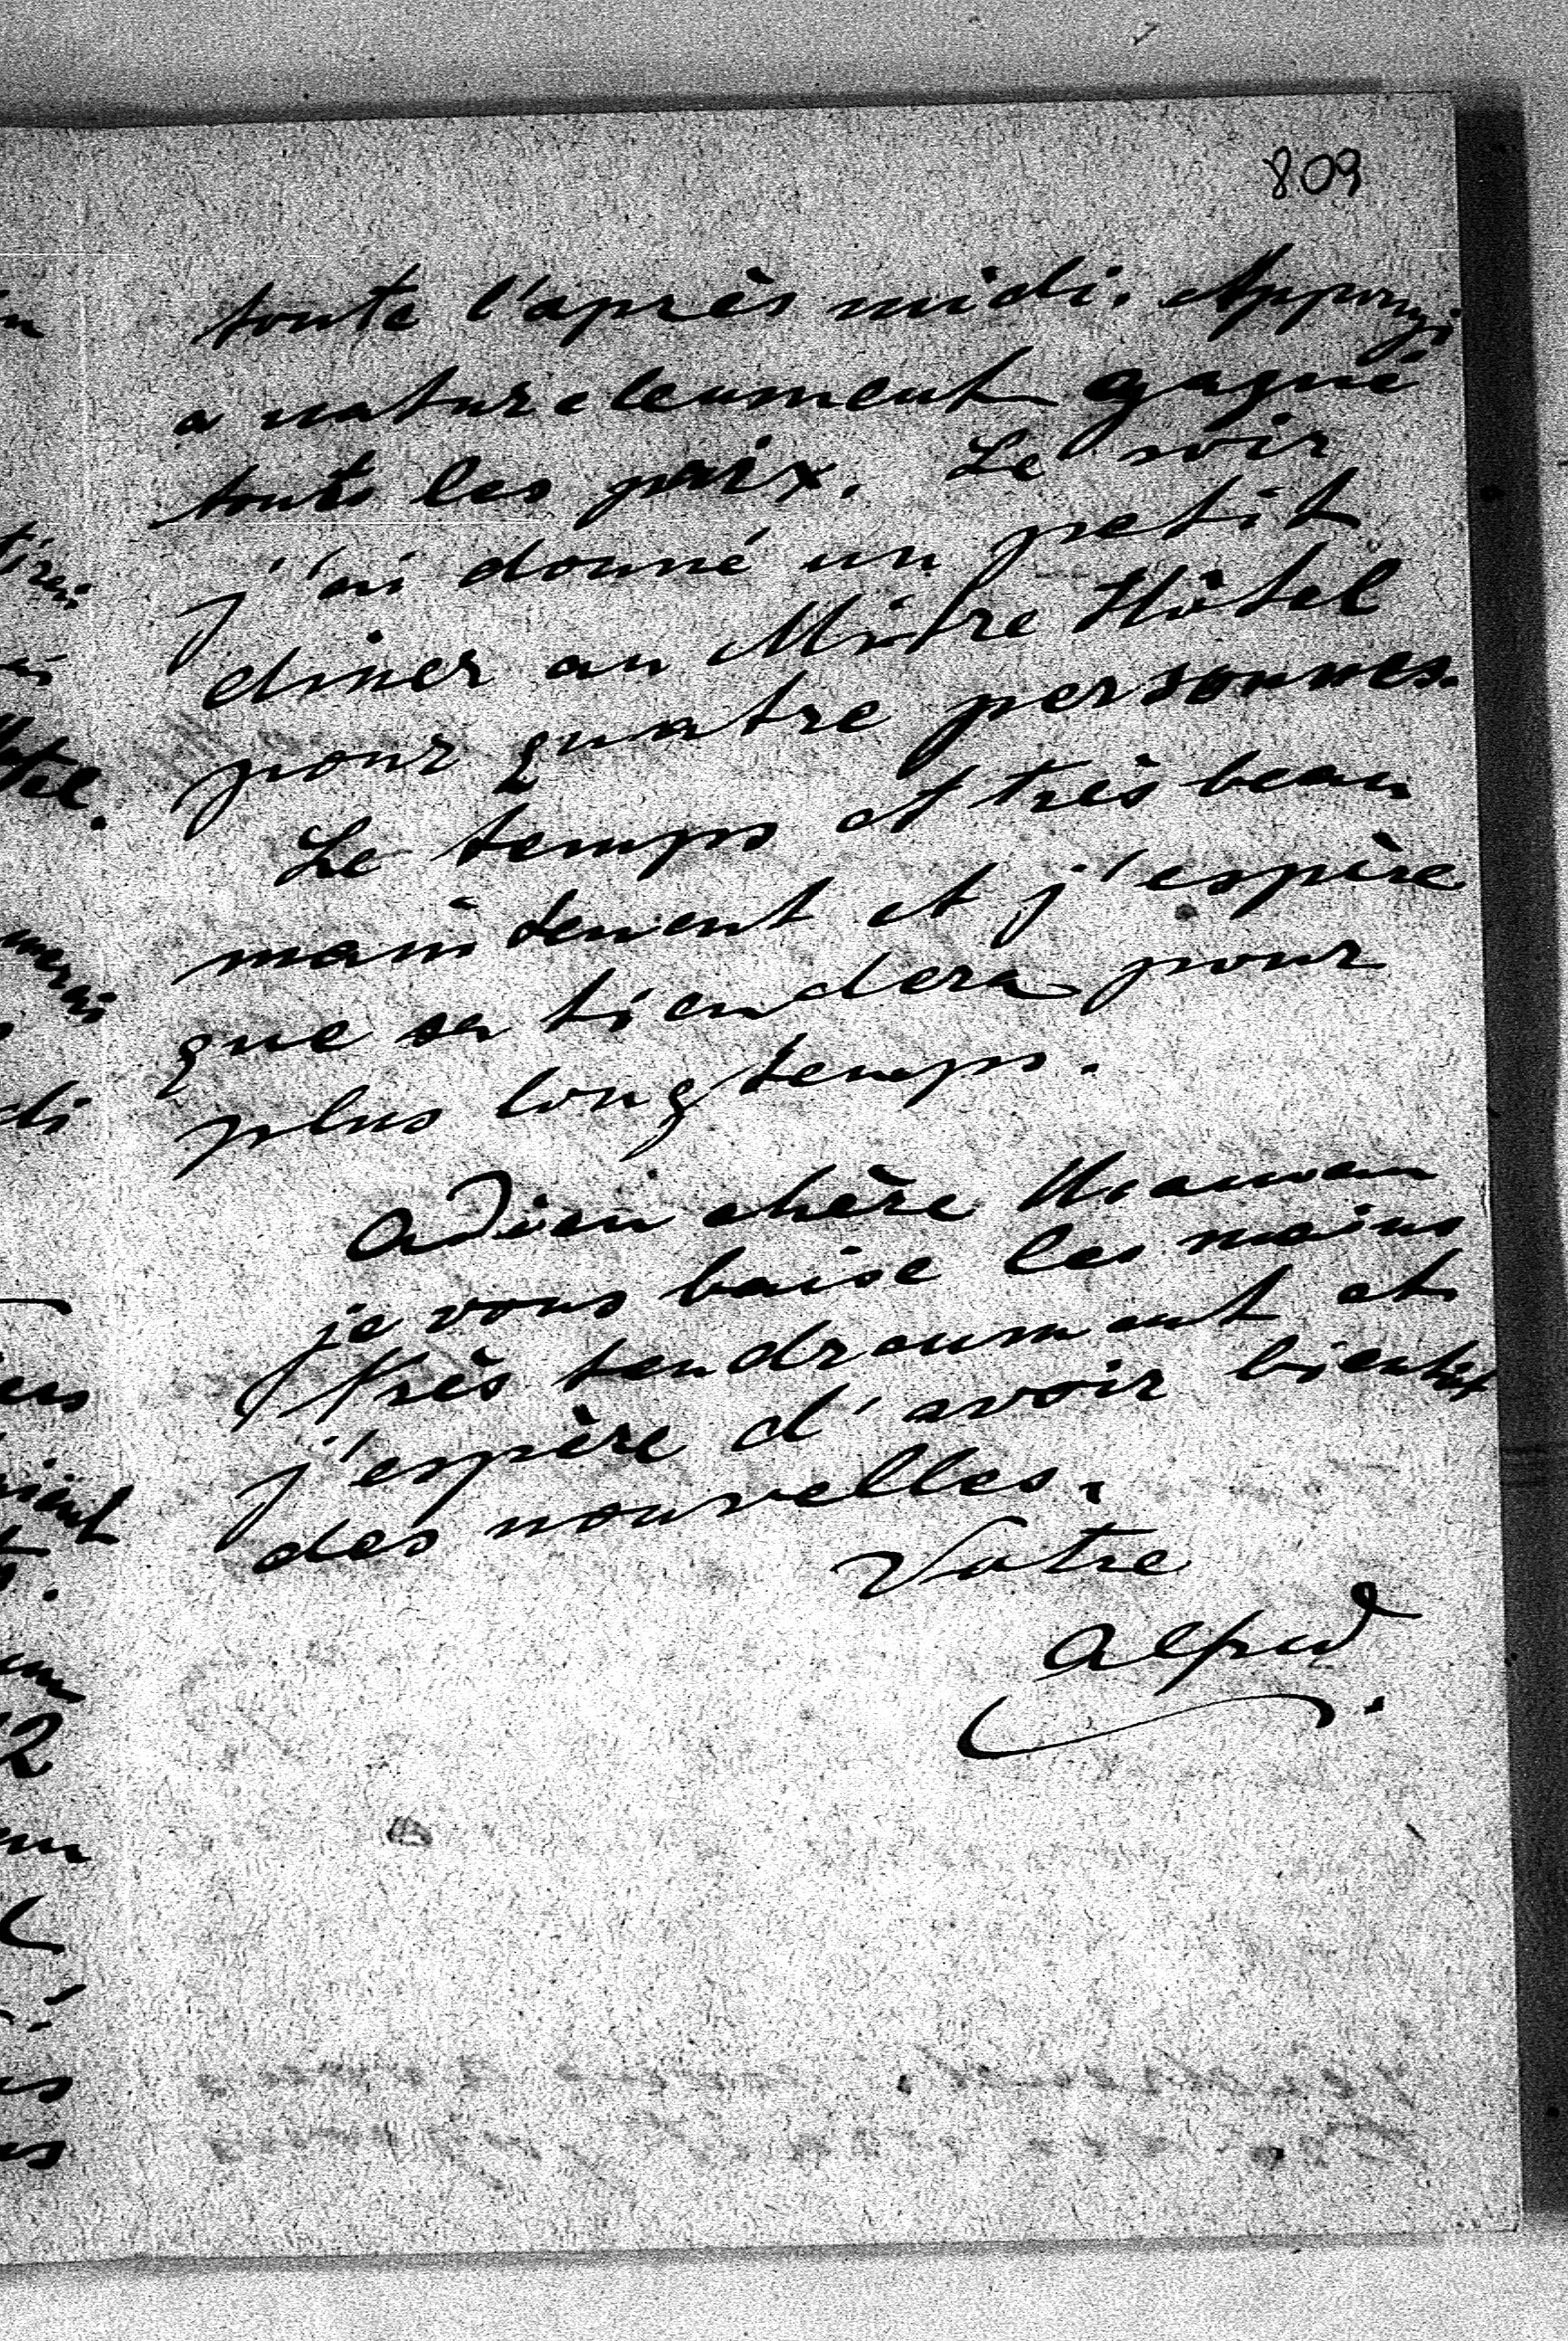 809
toute l'après midi. Apponyi
a natureleument gagné
touts les prix. Le soir
j'ai donné un petit
diner au Mitre Hôtel
pour quatre personnes.
Le temps et très beau
maintenent et j'espère
que sa tiendera pour
plus longtemps.
Adieu chère Maman
je vous baise les mains
très tendreument et
j'espère d'avoir bientôt
des nouvelles.
Votre
Alfred.